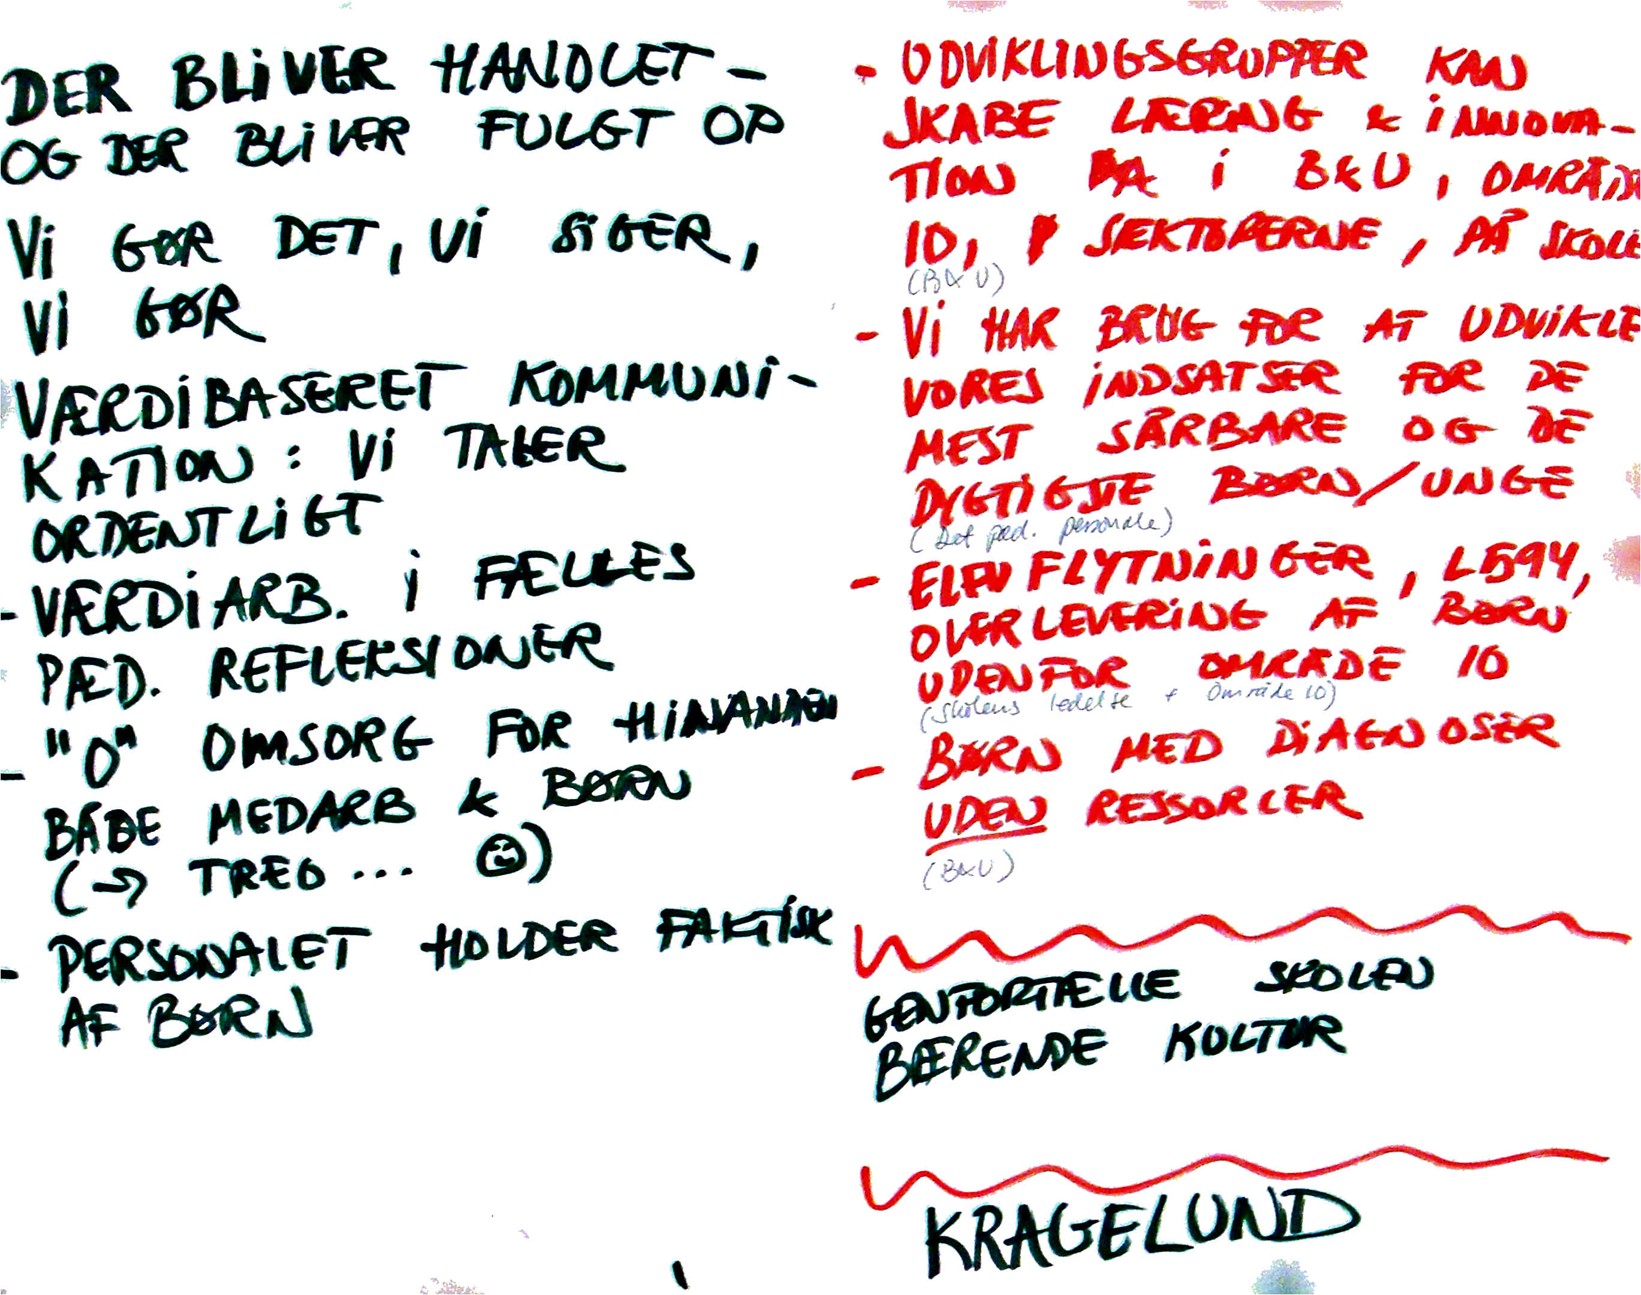 DER BLiVER HANDLET -
OG DER BLiVER FULGT OP
Vi GØR DET, Vi SiGER,
Vi GØR
VÆRDiBASERET KOMMUNi-
KATION : Vi TALER
ORDENTLiGT
- VÆRDiARB. i FÆLLES
PÆD. REFLEKSIONER
"O" OMSORG FOR HiNANDEN
- BÅDE MEDARB & BØRN
(→ TREO ... )
- PERSONALET HOLDER FAKTISK
AF BØRN
- UDVIKLINGSGRUPPER KAN
SKABE LÆRING & iNNOVA-
TION i B&U, OMRÅDE
10, SEKTORERNE, PÅ SKOLE
(B&U)
- Vi HAR BRUG FOR AT UDViKLE
VORES iNDSATSER FOR DE
MEST SÅRBARE OG DE
DYGTIGSTE BØRN/UNGE
(Det pæd. personale)
- ELEVFLYTNiNGER, L594,
OVERLEVERiNG AF BØRN
UDENFOR OMRÅDE 10
(Skolens ledelse + Område 10)
- BØRN MED DiAGNOSER
UDEN RESSORCER
(B&U)
GENFORTÆLLE SKOLEN
BÆRENDE KULTUR
KRAGELUND